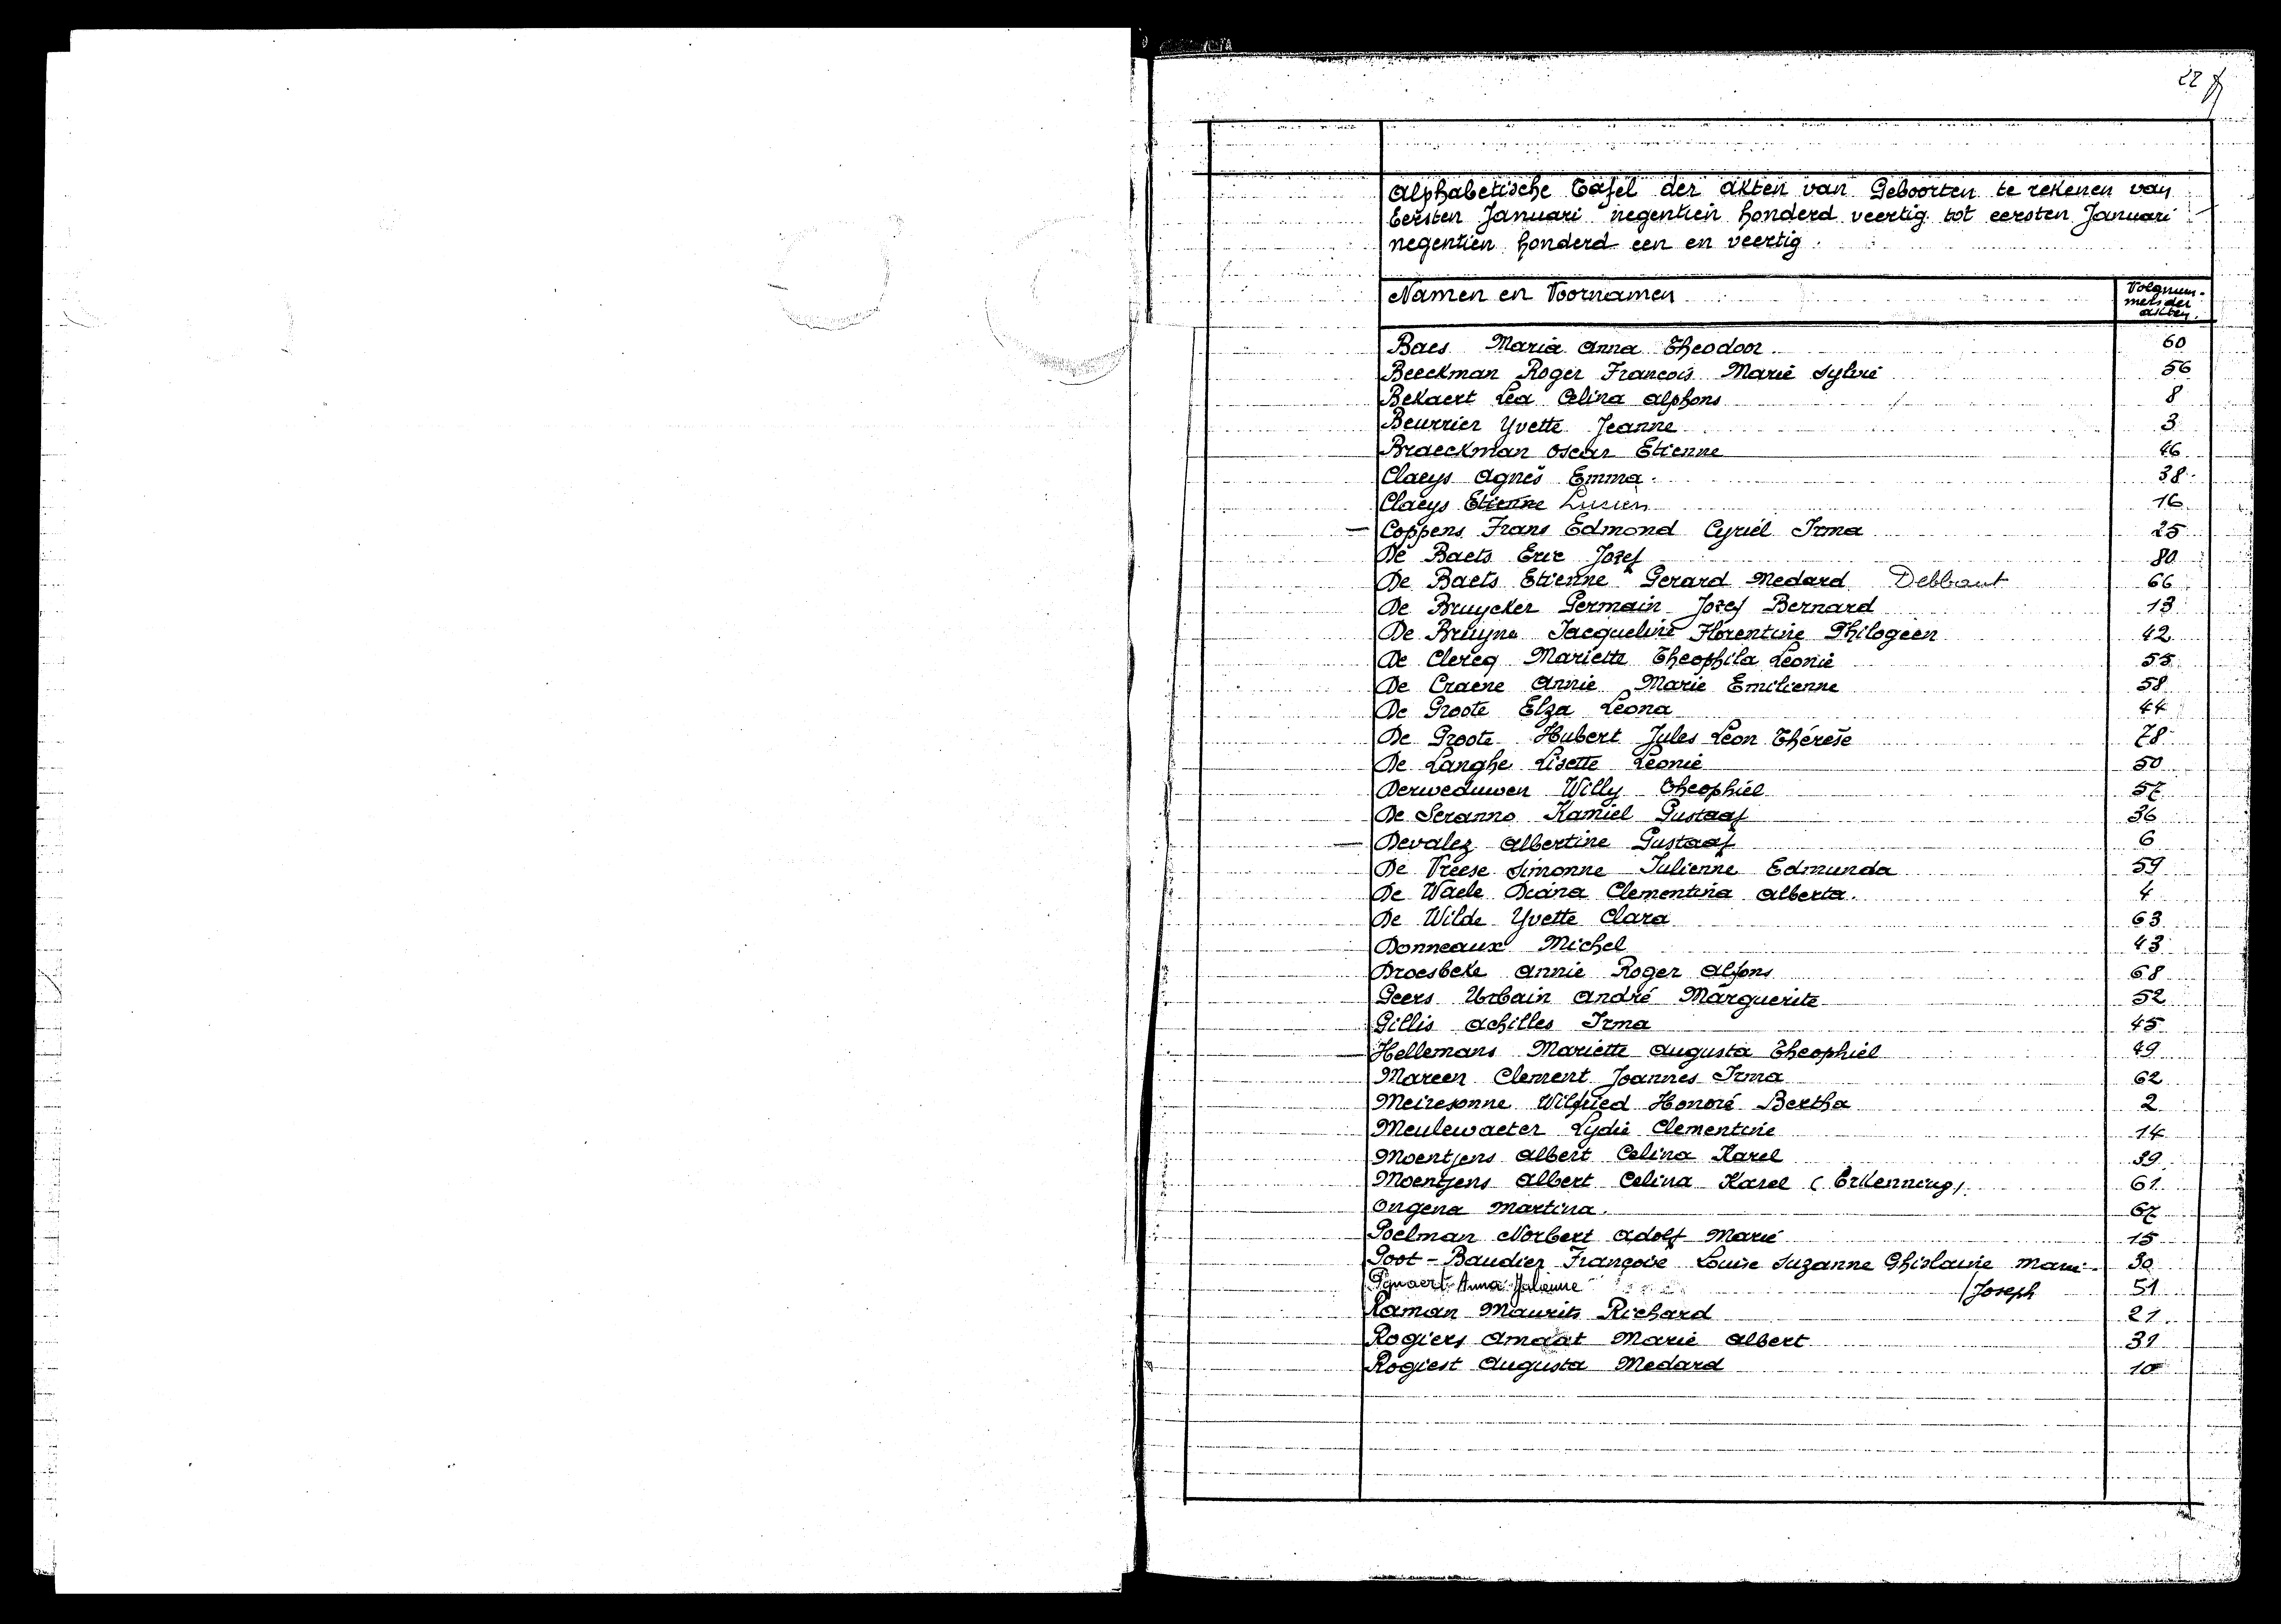 22
Alphabetische Tafel der akten van Geboorten te rekenen van
Eersten Januari negentien honderd veertig tot eersten Januari
negentien honderd een en veertig.
Namen en Voornamen
Volgnum-
mers der
akten.
Baes Maria Anna Theodoor 60
Beeckman Roger François Marie Sylvie 56
Bekaert Lea Celina Alphons 8
Beurrier Yvette Jeanne 3
Braeckman Oscar Etienne 46
Claeys Agnès Emma 38
Claeys Etienne Lucien 16
Coppens Frans Edmond Cyriel Irma 25
De Baets Eric Jozef 80
De Baets Etienne Gerard Medard Debbaut 66
De Bruycker Germain Jozef Bernard 13
De Bruyne Jacqueline Florentine Philogeen 42
De Clercq Mariette Theophila Leonie 55
De Craene Annie Marie Emilienne 58
De Groote Elza Leona 44
De Groote Hubert Jules Leon Thérèse 78
De Langhe Lisette Leonie 50
Derweduwen Willy Theophiel 57
De Seranno Kamiel Gustaaf 36
Devalez Albertine Gustaaf 6
De Vreese Simonne Julienne Edmunda 59
De Waele Diana Clementina Alberta. 4
De Wilde Yvette Clara 63
Donneaux Michel 43
Droesbeke Annie Roger Alfons 68
Geers Urbain André Marguerite 52
Gillis Achilles Irma 45
Hellemans Mariette Augusta Theophiel 49
Mareen Clement Joannes Irma 62
Meiresonne Wilfried Honoré Bertha 2
Meulewaeter Lydie Clementine 14
Moentjens Albert Celina Karel 39
Moentjens Albert Celina Karel (Erkenning) 61
Ongena Martina. 67
Poelman Norbert Adolf Marie 15
Poot-Baudier Françoise Louise Suzanne Ghislaine Marie- 30
/Joseph
Pynaert Anna 51
Raman Maurits Richard 21
Rogiers Amaat Marie Albert 31
Rogiest Augusta Medard 10